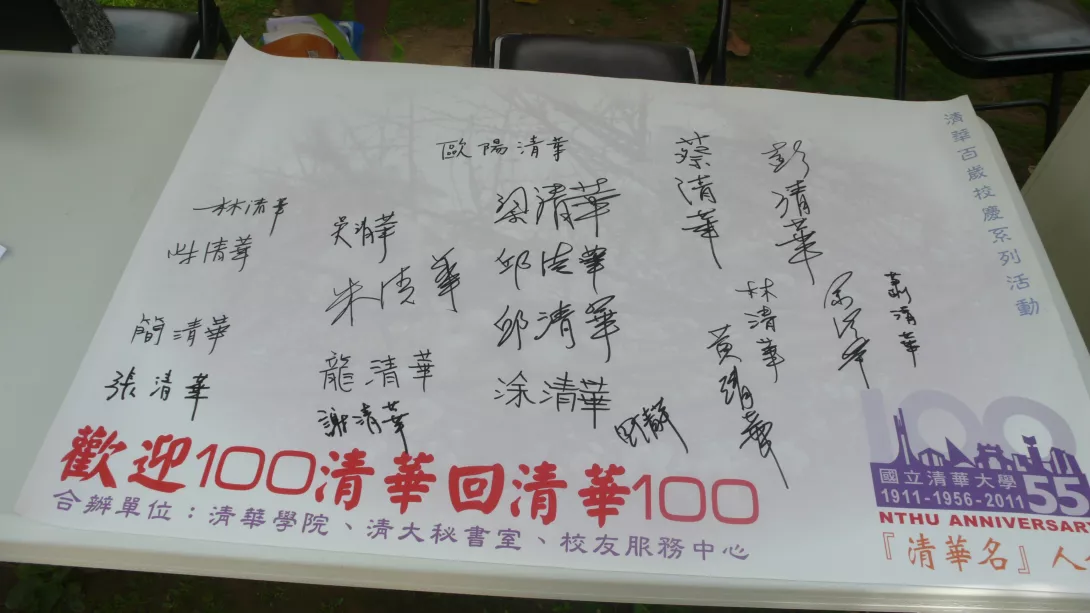 清華百歲校慶系列活動
歐陽清華
蔡清華
彭清華
林清華
梁清華
吳清華
柴清華
邱清華
朱清華
簡清華
邱清華
林清華
蕭清華
龍清華
張清華
涂清華
黃清華
謝清華
歡迎100清華回清華100
合辦單位：清華學院、清大秘書室、校友服務中心
100
國立清華大學
1911-1956-2011
55
NTHU ANNIVERSARY
『清華名』人